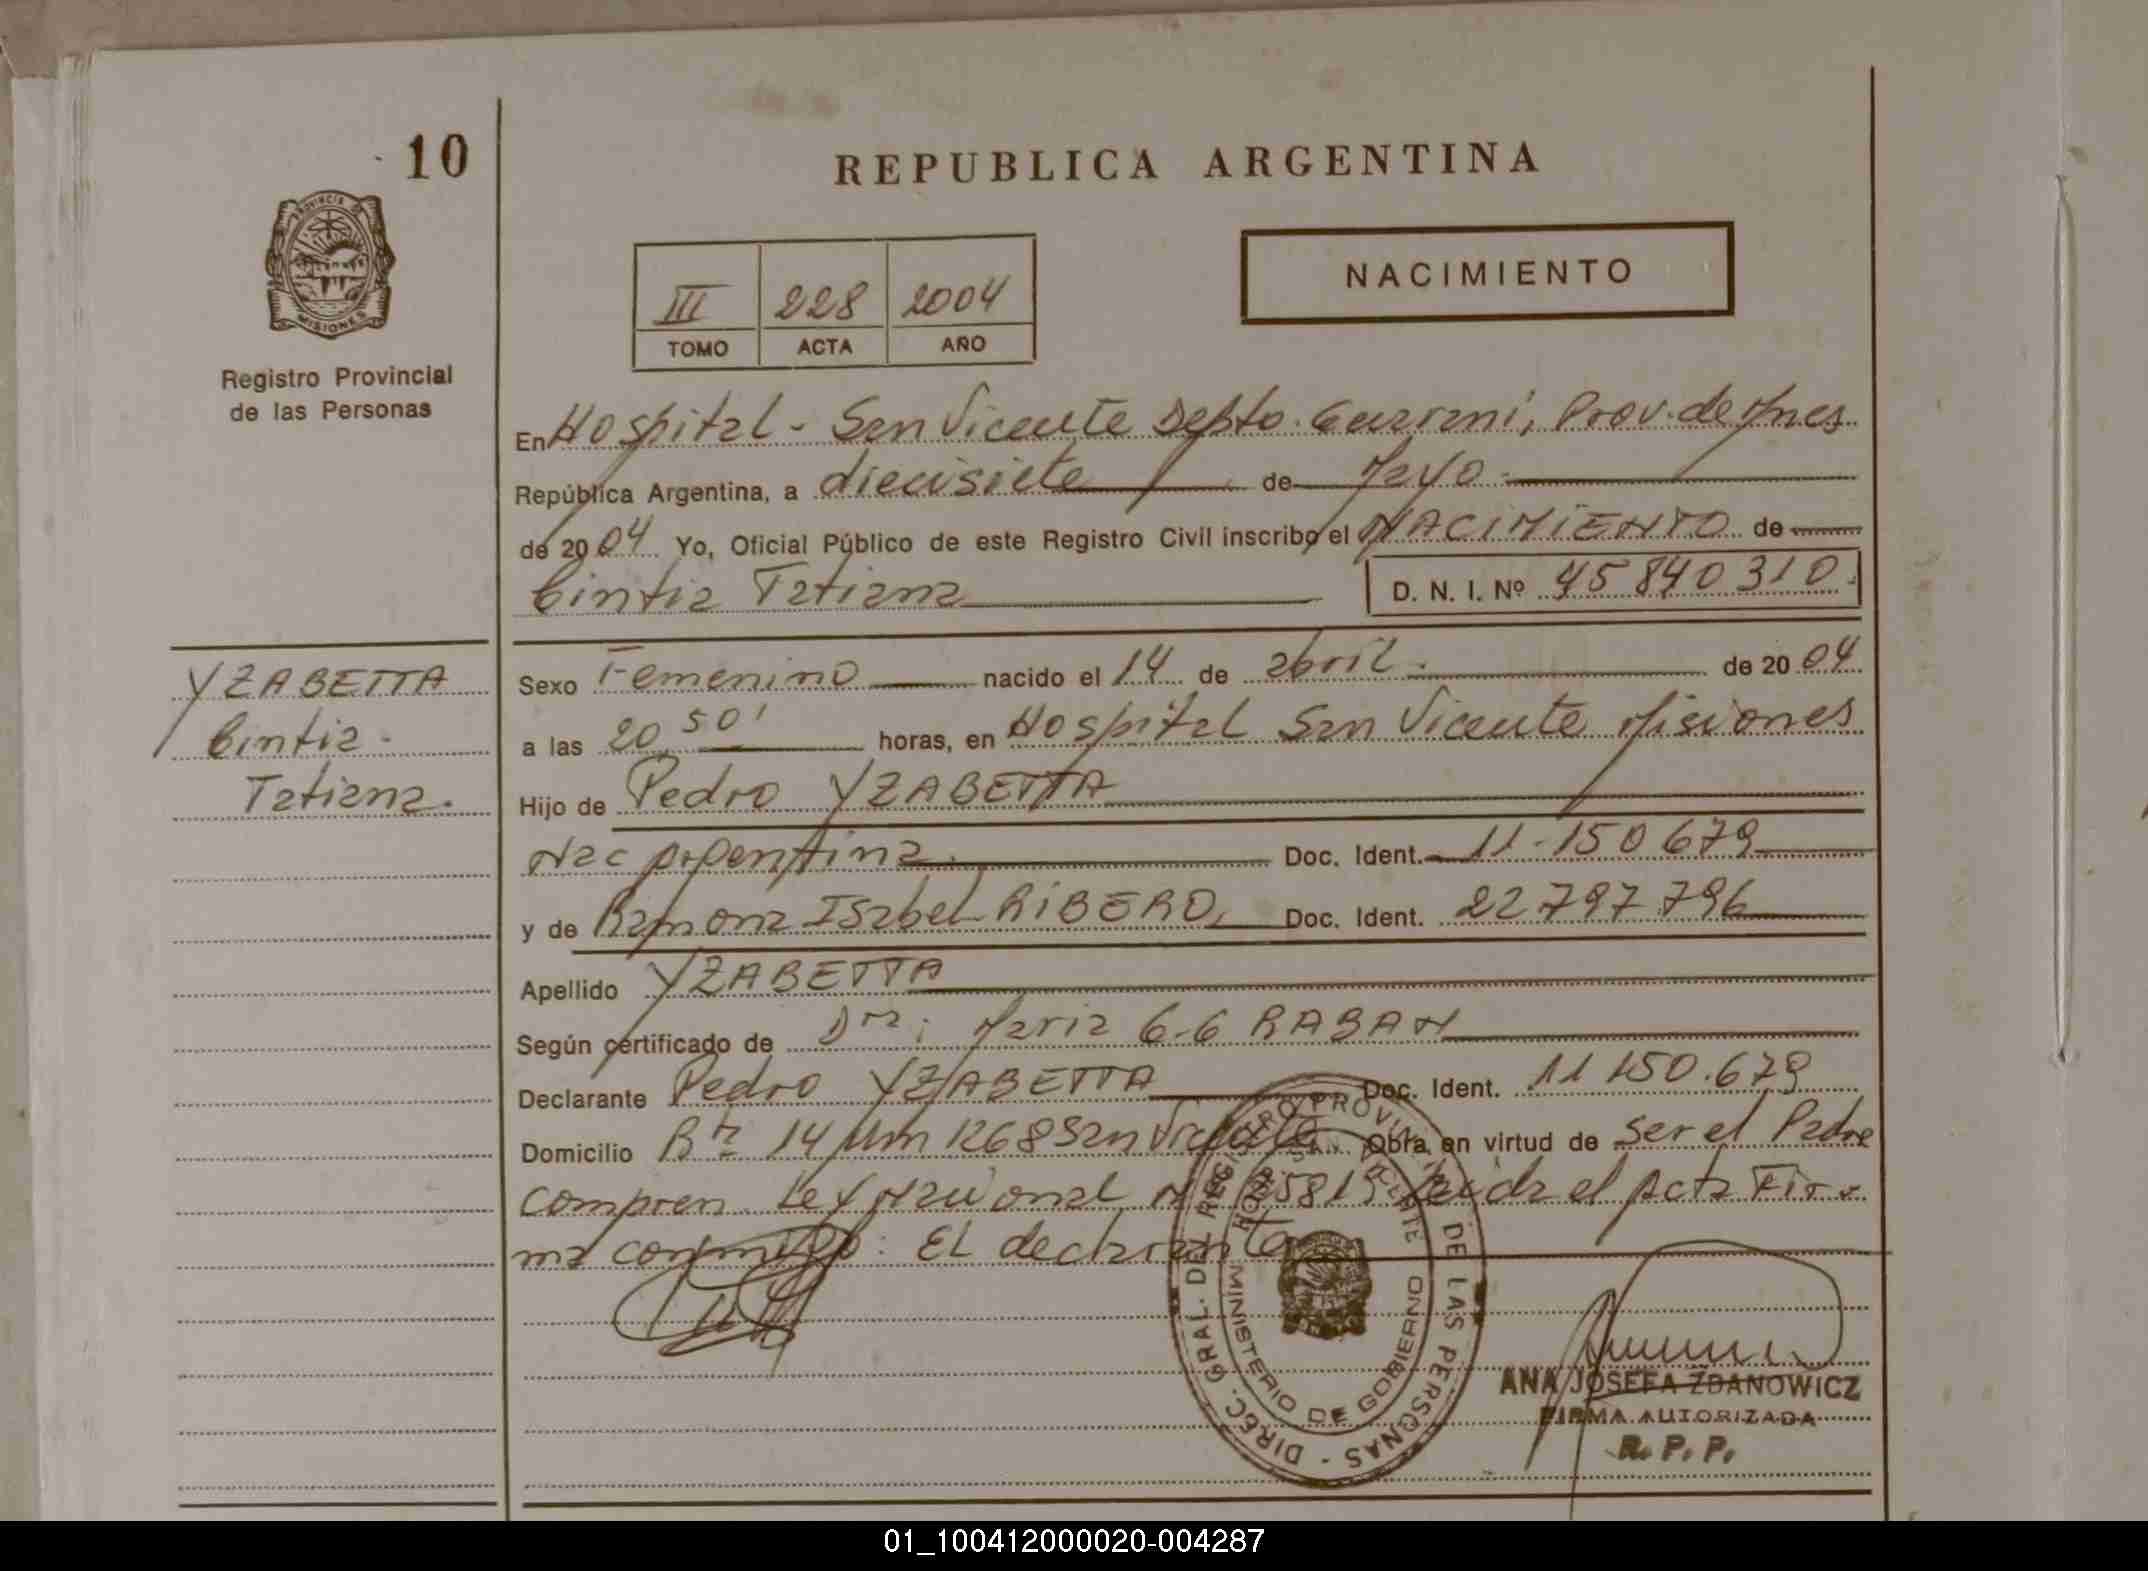 10
REPUBLICA ARGENTINA
NACIMIENTO
III 228 2004
TOMO ACTA AÑO
PROVINCIA DE
MISIONES
Registro Provincial
de las Personas
En Hospital - San Vicente Depto. Guarani, Prov. de Mnes
República Argentina, a diecisiete de Mayo
de 2004 Yo, Oficial Público de este Registro Civil inscribo el NACIMIENTO de
Cintia Tatiana
D. N. I. Nº 45 840 310
YZABETTA
Cintia
Tatiana.
Sexo Femenino nacido el 14 de abril. de 2004
a las 20,50' horas, en Hospital San Vicente Misiones
Hijo de Pedro YZABETTA
Nac Argentina. Doc. Ident. 11-150 679
y de Ramona Isabel RIBERO, Doc. Ident. 22 797 796
Apellido YZABETTA
Según certificado de Dra; Maria G-G RABAN
Declarante Pedro YZABETTA Doc. Ident. 11 150.679
Domicilio Rta 14 Km 1268 San Vicente Obra en virtud de ser el Padre
Compren. Ley Nacional N 25819 Leida el Acta Fir-
ma conmigo: El declarante
DIREC. GRAL. DEL REGISTRO PROVINCIAL DE LAS PERSONAS
SAN VICENTE
MINISTERIO DE GOBIERNO
ANA JOSEFA ZDANOWICZ
FIRMA AUTORIZADA
R. P. P.
01_100412000020-004287